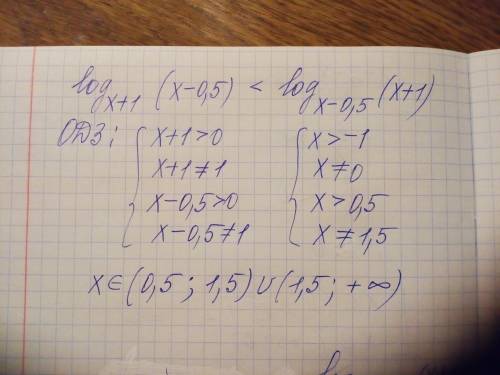 log_{x+1} (x-0,5) < log_{x-0,5} (x+1)
ОДЗ: { x+1>0 { x>-1
x+1≠1 x≠0
x-0,5>0 x>0,5
x-0,5≠1 x≠1,5
x∈(0,5; 1,5)∪(1,5; +∞)